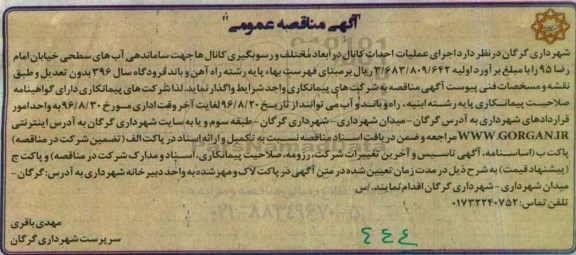 "آگهی مناقصه عمومی"
شهرداری گرگان در نظر دارد اجرای عملیات احداث کانال در ابعاد مختلف و رسوبگیری کانال ها جهت ساماندهی آب های سطحی خیابان امام
رضا ۹۵ را با مبلغ برآورد اولیه ۳/۶۸۳/۸۰۹/۶۴۲ ریال بر مبنای فهرست بهاء پایه رشته راه آهن و باند فرودگاه سال ۳۹۶ بدون تعدیل و طبق
نقشه و مشخصات فنی پیوست آگهی مناقصه به شرکت های پیمانکاری واجد شرایط واگذار نماید. لذا شرکت های پیمانکاری دارای گواهینامه
صلاحیت پیمانکاری پایه رشته ابنیه، راه و باند و آب می توانند از تاریخ ۹۶/۸/۲۰ لغایت آخر وقت اداری مورخ ۹۶/۸/۳۰ به واحد امور
قراردادهای شهرداری به آدرس گرگان - میدان شهرداری - شهرداری گرگان - طبقه سوم و یا به سایت شهرداری گرگان به آدرس اینترنتی
WWW.GORGAN.IR مراجعه و ضمن دریافت اسناد مناقصه نسبت به تکمیل و ارائه اسناد در پاکت الف (تضمین شرکت در مناقصه)
پاکت ب (اساسنامه، آگهی تاسیس و آخرین تغییرات شرکت، رزومه، صلاحیت پیمانکاری، اسناد و مدارک شرکت در مناقصه) و پاکت ج
(پیشنهاد قیمت) به شرح ذیل در مدت زمان تعیین شده در متن آگهی در پاکت لاک و مهر شده به واحد دبیرخانه شهرداری به آدرس: گرگان -
میدان شهرداری - شهرداری گرگان اقدام نمایند./س
تلفن تماس: ۰۱۷۳۲۲۴۰۷۵۲
۰۲۱-۸۸۳۴۹۶۷۰-۵
مهدی باقری
سرپرست شهرداری گرگان
۴۴۴